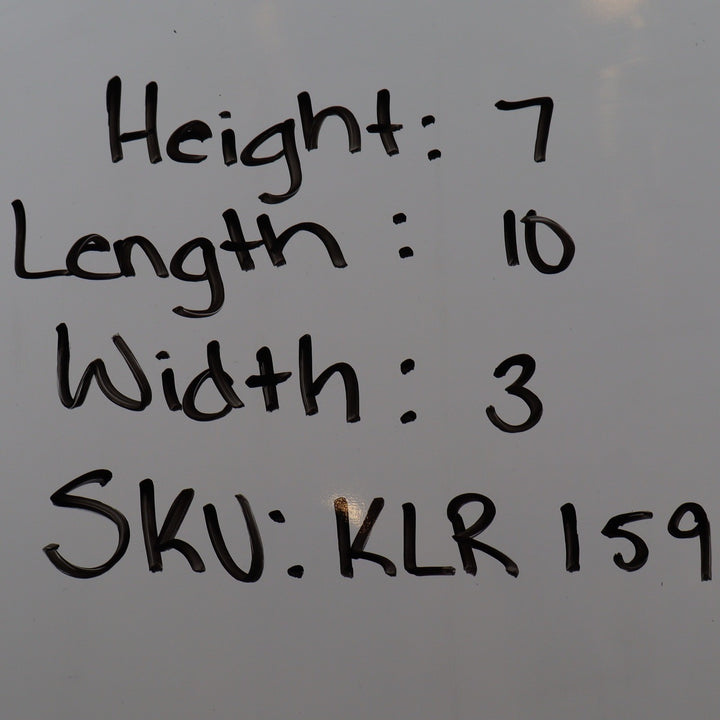 Height: 7
Length: 10
Width: 3
SKU: KLR 159